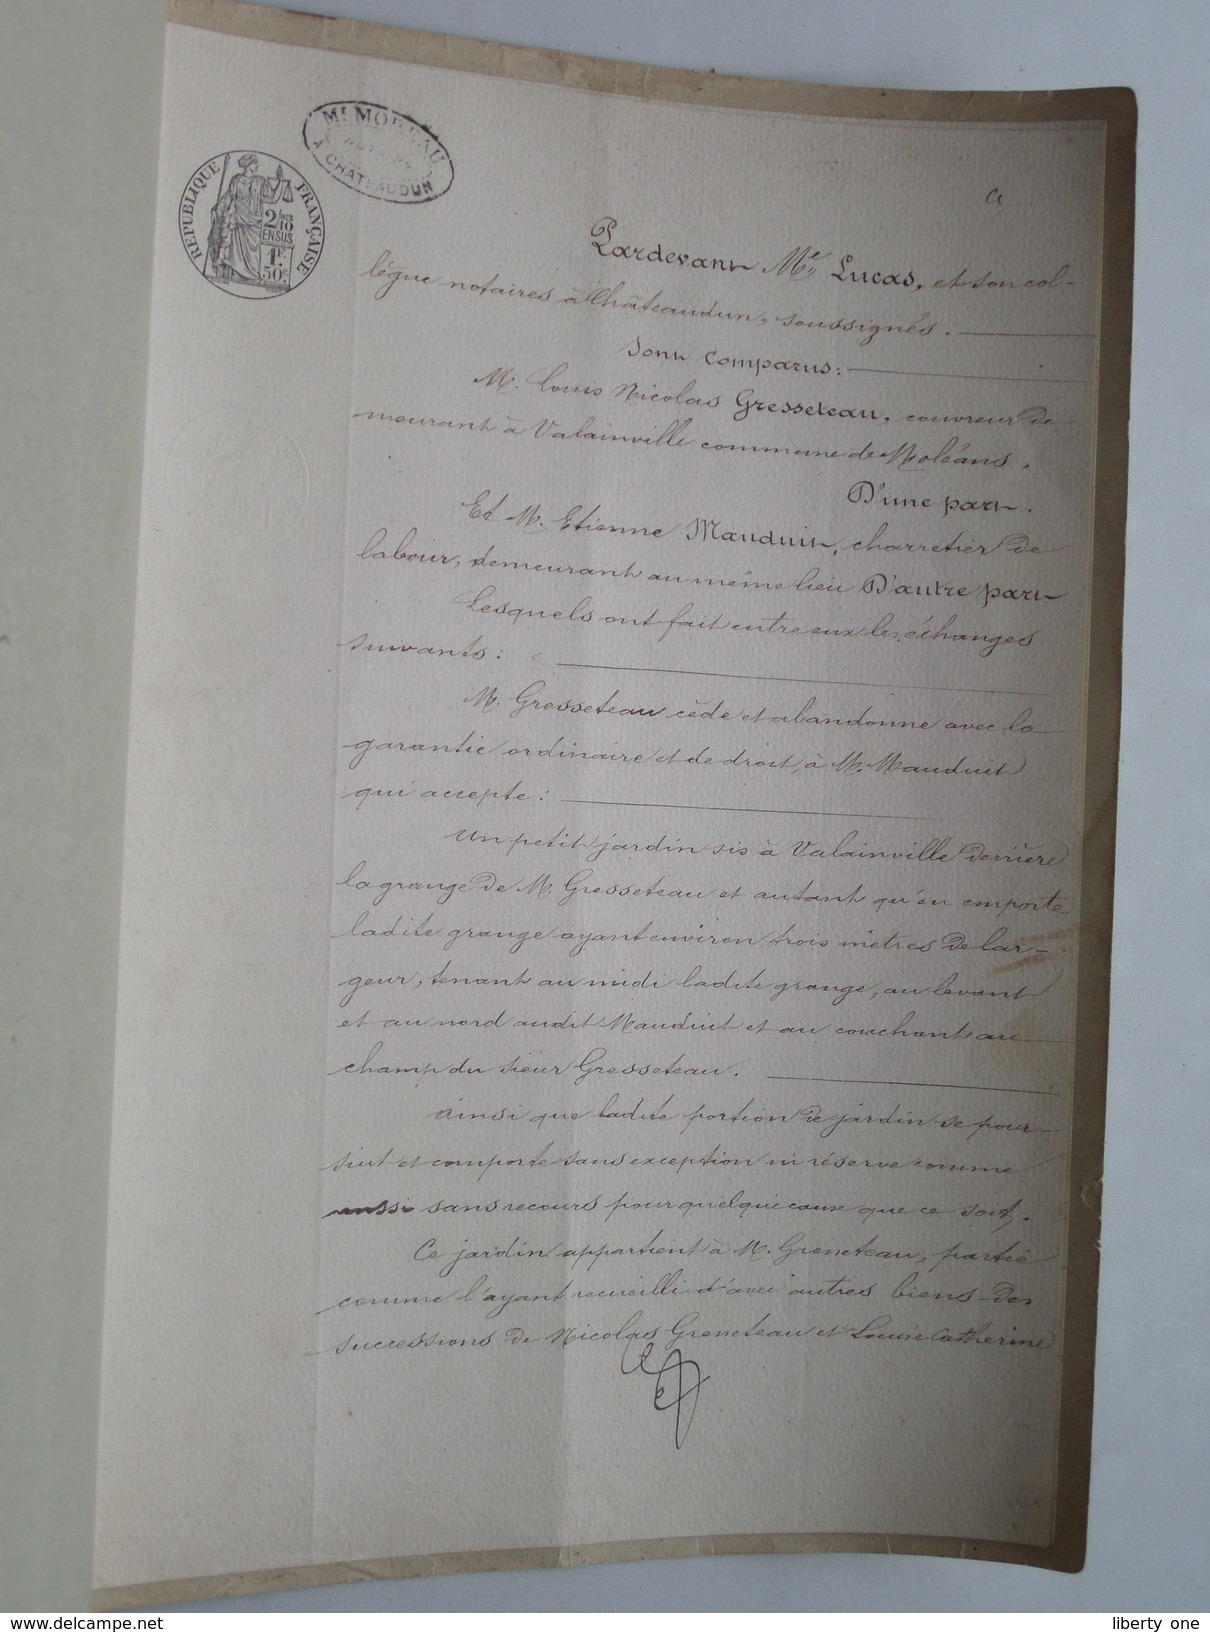 Mt MOREAU
NOTAIRE
A CHATEAUDUN
REPUBLIQUE FRANÇAISE
2/10
EN SUS
1F.
50c.
Pardevant Me Lucas, et son col-
lègue notaires à Châteaudun, soussignés.
Sont comparus:
M. Louis Nicolas Gresseteau, couvreur de-
meurant à Valainville commune de Moléans.
D'une part.
Et M. Etienne Mauduit, charretier de
labour, demeurant au même lieu D'autre part
Lesquels ont fait entre eux les échanges
suivants:
M. Gresseteau cède et abandonne avec la
garantie ordinaire et de droit, à M. Mauduit
qui accepte:
Un petit jardin sis à Valainville derrière
la grange de M. Gresseteau et autant qu'en emporte
ladite grange ayant environ trois mètres de lar-
geur, tenant au midi ladite grange, au levant
et au nord audit Mauduit et au couchant au
champ du sieur Gresseteau.
Ainsi que ladite portion de jardin se pour-
suit et comporte sans exception ni réserve comme
aussi sans recours pour quelque cause que ce soit.
Ce jardin appartient à M. Greneteau, partie
comme l'ayant recueilli d'avec autres biens des
successions de Nicolas Greneteau et Louise Catherine
www.delcampe.net
liberty one